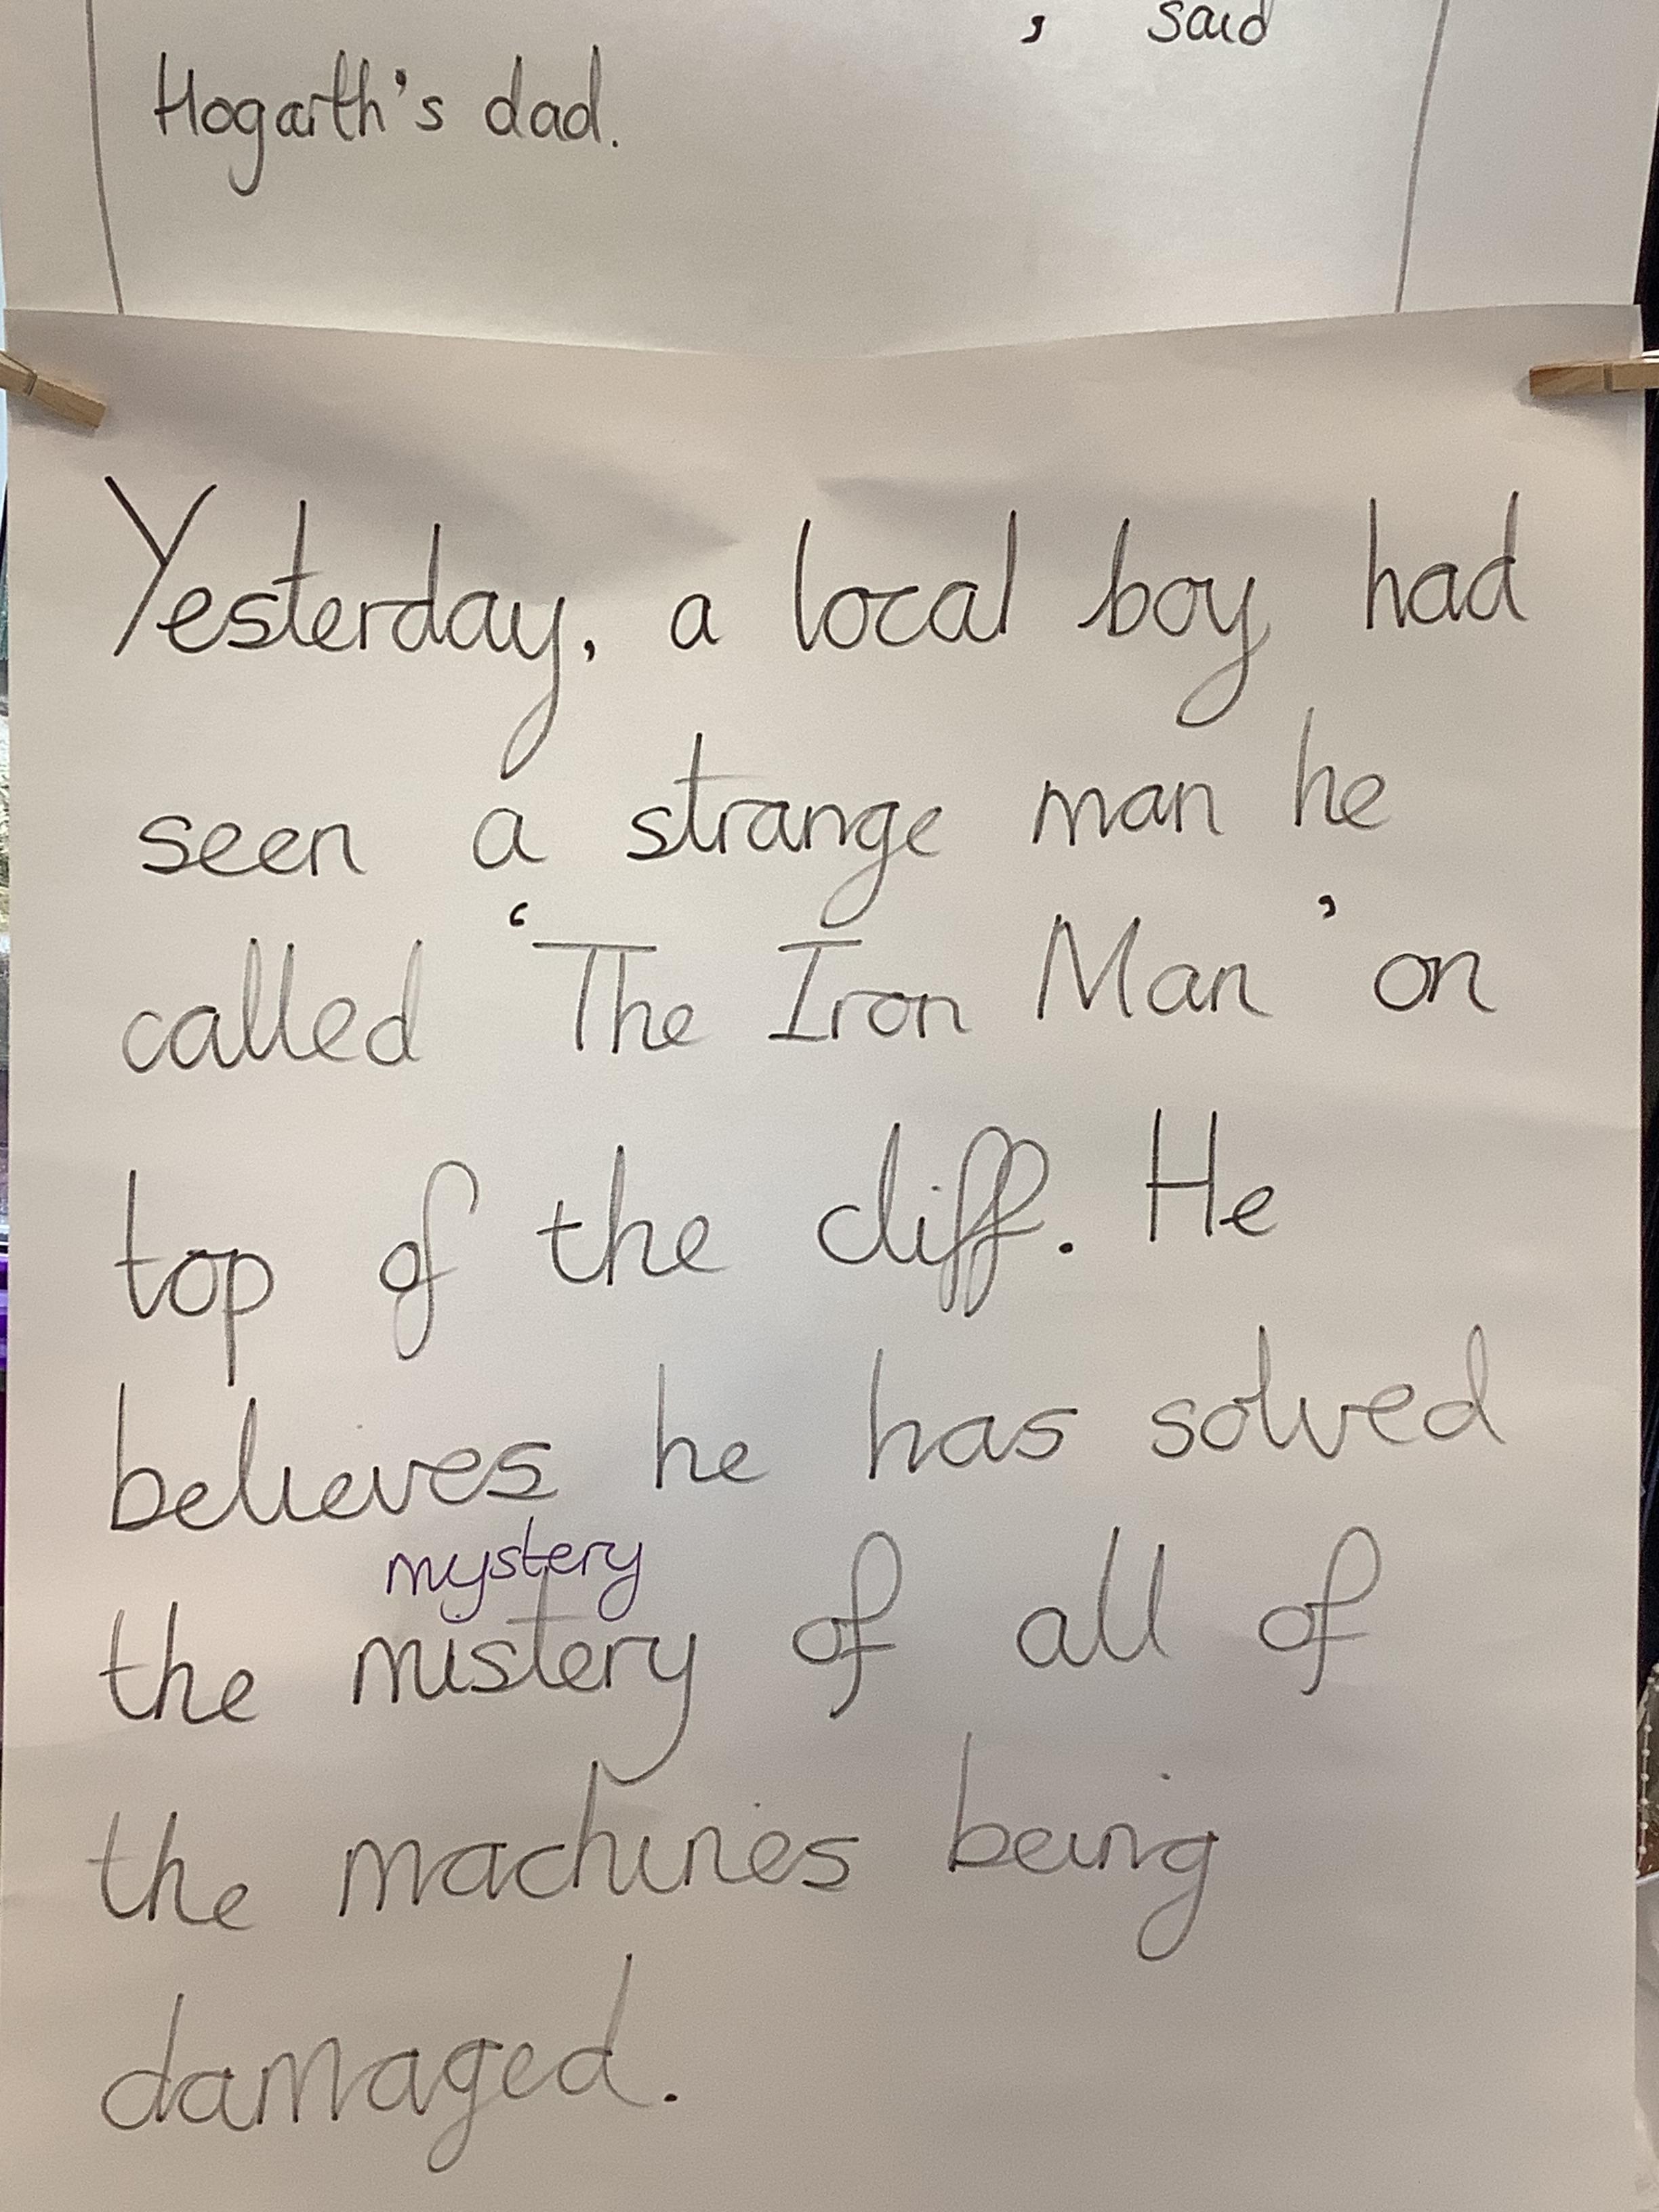 , said
Hogarth's dad.
Yesterday, a local boy had
seen a strange man he
called ‘The Iron Man’ on
top of the cliff. He
believes he has solved
mystery
the mistery of all of
the machines being
damaged.